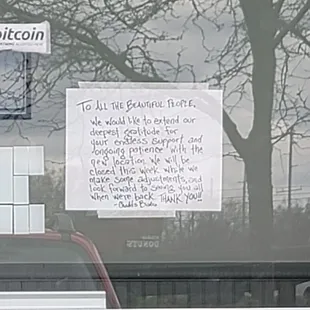 bitcoin
TO ALL THE BEAUTIFUL PEOPLE,
We would like to extend our
deepest gratitude for
your endless support and
ongoing patience with the
new location. We will be
closed this week while we
make some adjustments, and
look forward to seeing you all
when we're back. THANK YOU!!